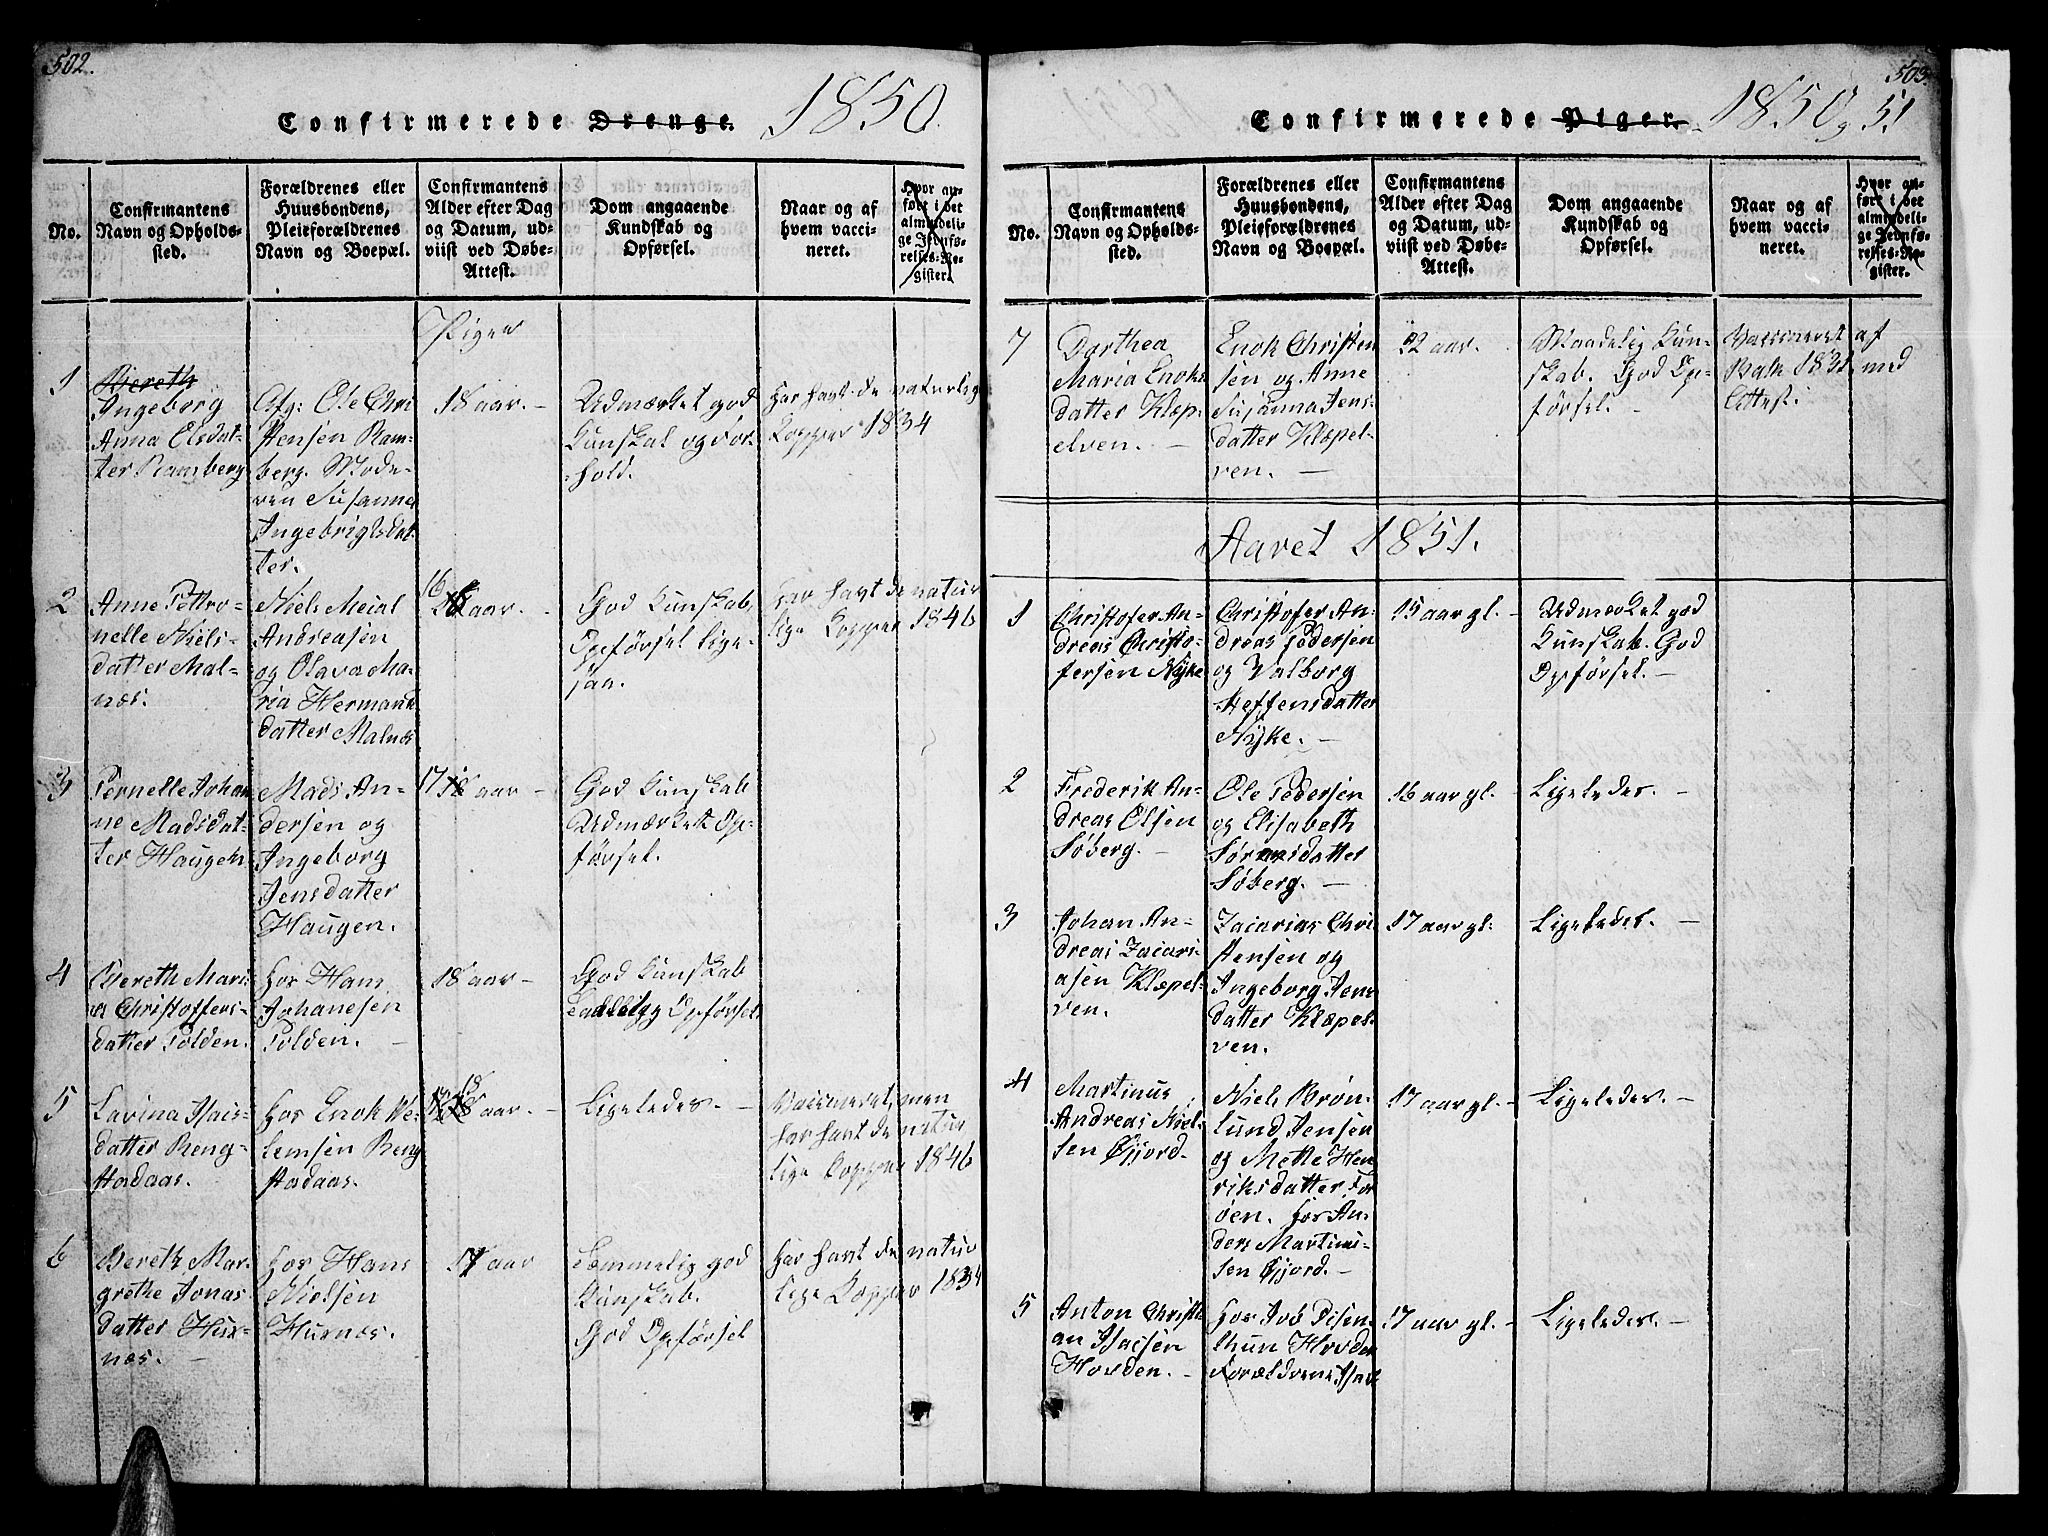 502.
Confirmerede Drenge. 1850.
No.
Confirmantens
Navn og Opholds-
sted.
Forældrenes eller
Huusbondens,
Pleieforældrenes
Navn og Boepæl.
Confirmantens
Alder efter Dag
og Datum, ud-
viist ved Døbe-
Attest.
Dom angaaende
Kundskab og
Opførsel.
Naar og af
hvem vacci-
neret.
Hvor an-
ført i det
almindeli-
ge Jevnfø-
relses-Re-
gister.
Piger
1
Bereth
Ingeborg
Anna Olsdat-
ter Ramsberg
Afg: Ole Chri
stensen Ram-
berg. Mode-
ren Susanna
Ingebrigtsdat-
ter.
18 aar. -
Udmærket god
Kunskab og For
hold.
Har havt de naturlig
Kopper 1834
2
Anne Petro-
nelle Niels-
datter Mal-
næs.
Niels Meial
Andreasen
og Olava Ma-
ria Hermans
datter Malnæs
16 aar. -
God Kunskab,
Opførsel lige-
saa.
Har havt de natur
lige Kopper 1846
3
Pernelle Johan
ne Madsdat-
ter Haugen
Mads An-
dersen og
Ingeborg
Jensdatter
Haugen.
17 aar -
God Kunskab
Udmærket Op-
førsel.
4
Bereth Mari-
a Christoffers-
datter Polden.
Hos Hans
Johanesen
Polden. -
18 aar -
God Kunskab
Opførsel
5
Lavina Isacs-
datter Reng-
stadaas.
Hos Enok We-
lemsen Reng
stadaas.
18 aar. -
Ligeledes. -
Vaccineret, men
har havt de natur
lige Kopper 1846
6
Bereth Mar-
grethe Jonas-
datter Hus-
næs. -
Hos Hans
Nielsen
Husnæs.
17 aar
Temmelig god
Kunskab.
God Opførsel
Har havt de natur
lige Kopper 1834
503.
Confirmerede Piger. 1850 og 51
No.
Confirmantens
Navn og Opholds-
sted.
Forældrenes eller
Huusbondens,
Pleieforældrenes
Navn og Boepæl.
Confirmantens
Alder efter Dag
og Datum, ud-
viist ved Døbe-
Attest.
Dom angaaende
Kundskab og
Opførsel.
Naar og af
hvem vacci-
neret.
Hvor an-
ført i det
almindeli-
ge Jevnfø-
relses-Re-
gister.
7
Dorthea
Maria Enoks
datter Klæp-
elven. -
Enok Christen
sen og Anne
Susanna Jens-
datter Klæpel-
ven. -
22 aar.
Maadelig Kun-
skab. God Op-
førsel. -
Vaccineret af
Rask 1831 med
Attest.
Aaret 1851.
1
Christofer An-
dreas Christo-
fersen Nyke
Christofer An-
dreas Pedersen
og Valborg
Steffensdatter
Nyke. -
15 aar gl. -
Udmerket god
Kunskab. God
Opførsel. -
2
Frederik An-
dreas Olsen
Søberg. -
Ole Pedersen
og Elisabeth
Sørensdatter
Søberg. -
16 aar gl. -
Ligeledes. -
3
Johan An-
dreas Zacari-
asen Klæpel-
ven.
Zacarias Chri
stensen og
Ingeborg Jens
datter Klæpel-
ven.
17 aar gl.
Ligeledes. -
4
Martinus
Andreas Niel-
sen Gjord.
Niels Brøn-
lund Jensen
og Mette Hen
riksdatter For
øen. Hos An-
ders Martinus-
sen Gjord. -
17 aar gl. -
Ligeledes. -
5
Anton Christi-
an Isacsen
Hovden. -
Hos Jock Disen-
thun Hovden
Forældrene Isac
17 aar gl. -
Ligeledes. -